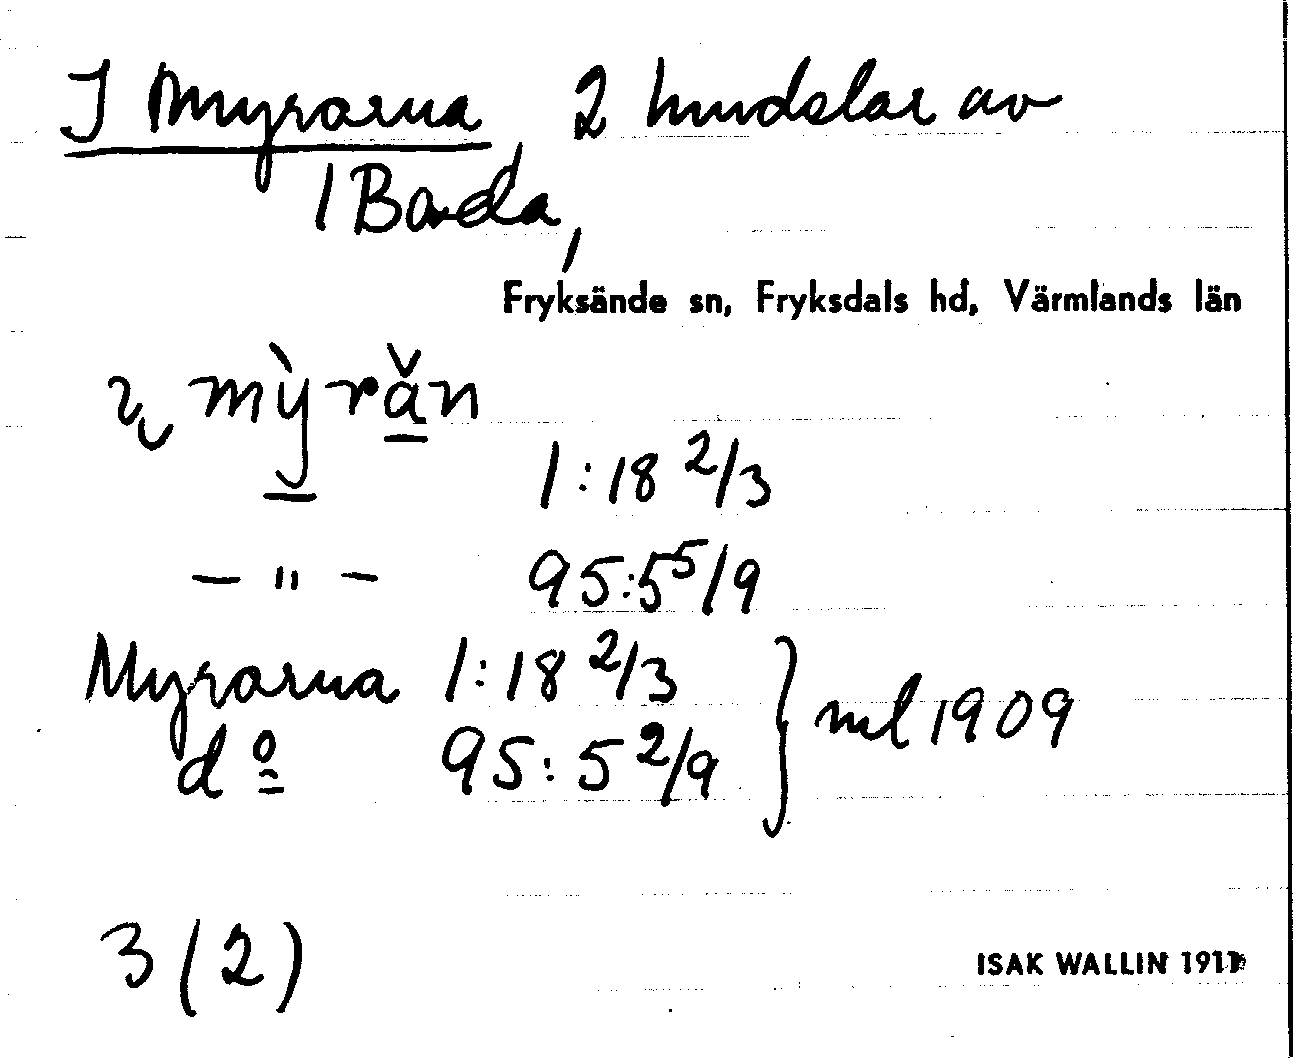 I Myrarna, 2 hemdelar av
1 Barda,
Fryksände sn, Fryksdals hd, Värmlands län
mỳrăn
1:18 2/3
— " — 95:5 5/9
Myrarna 1:18 2/3
dº 95:5 2/9 } ml 1909
3(2)
ISAK WALLIN 1911